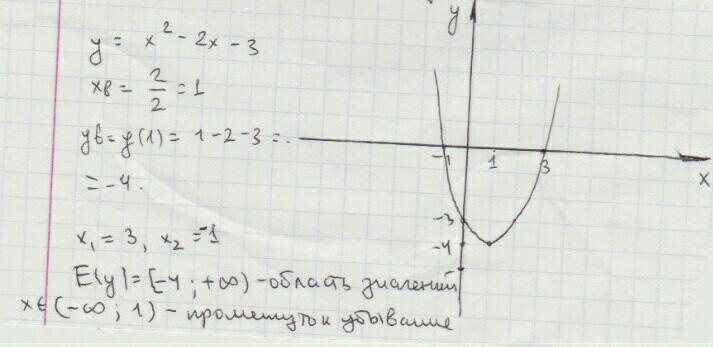 y = x² - 2x - 3
xв = 2/2 = 1
yв = y(1) = 1 - 2 - 3 =
= -4.
x₁ = 3, x₂ = -1
E(y) = [-4; +∞) - область значений
x ∈ (-∞; 1) - промежуток убывания
y
-1 1 3
x
-3
-4